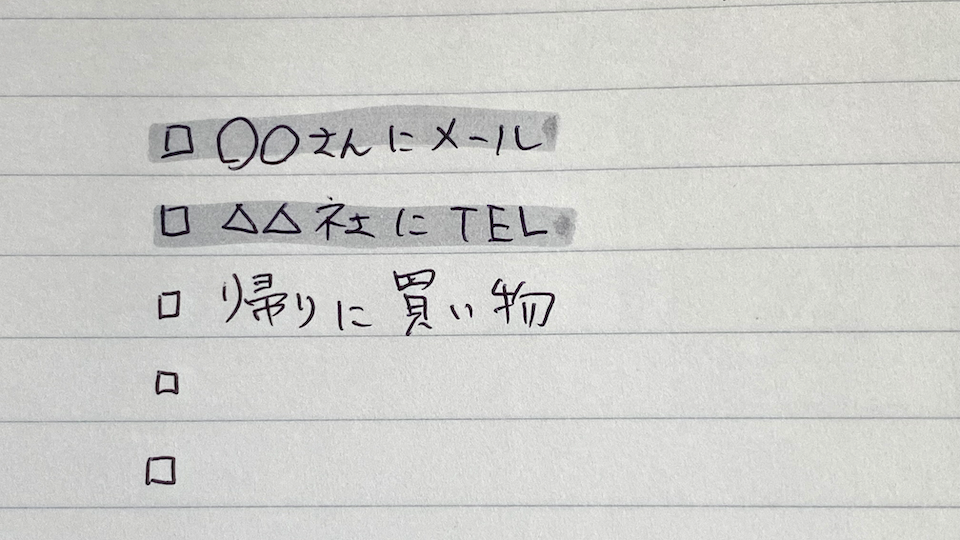 □ ○○さんにメール
□ △△社にTEL
□ 帰りに買い物
□
□